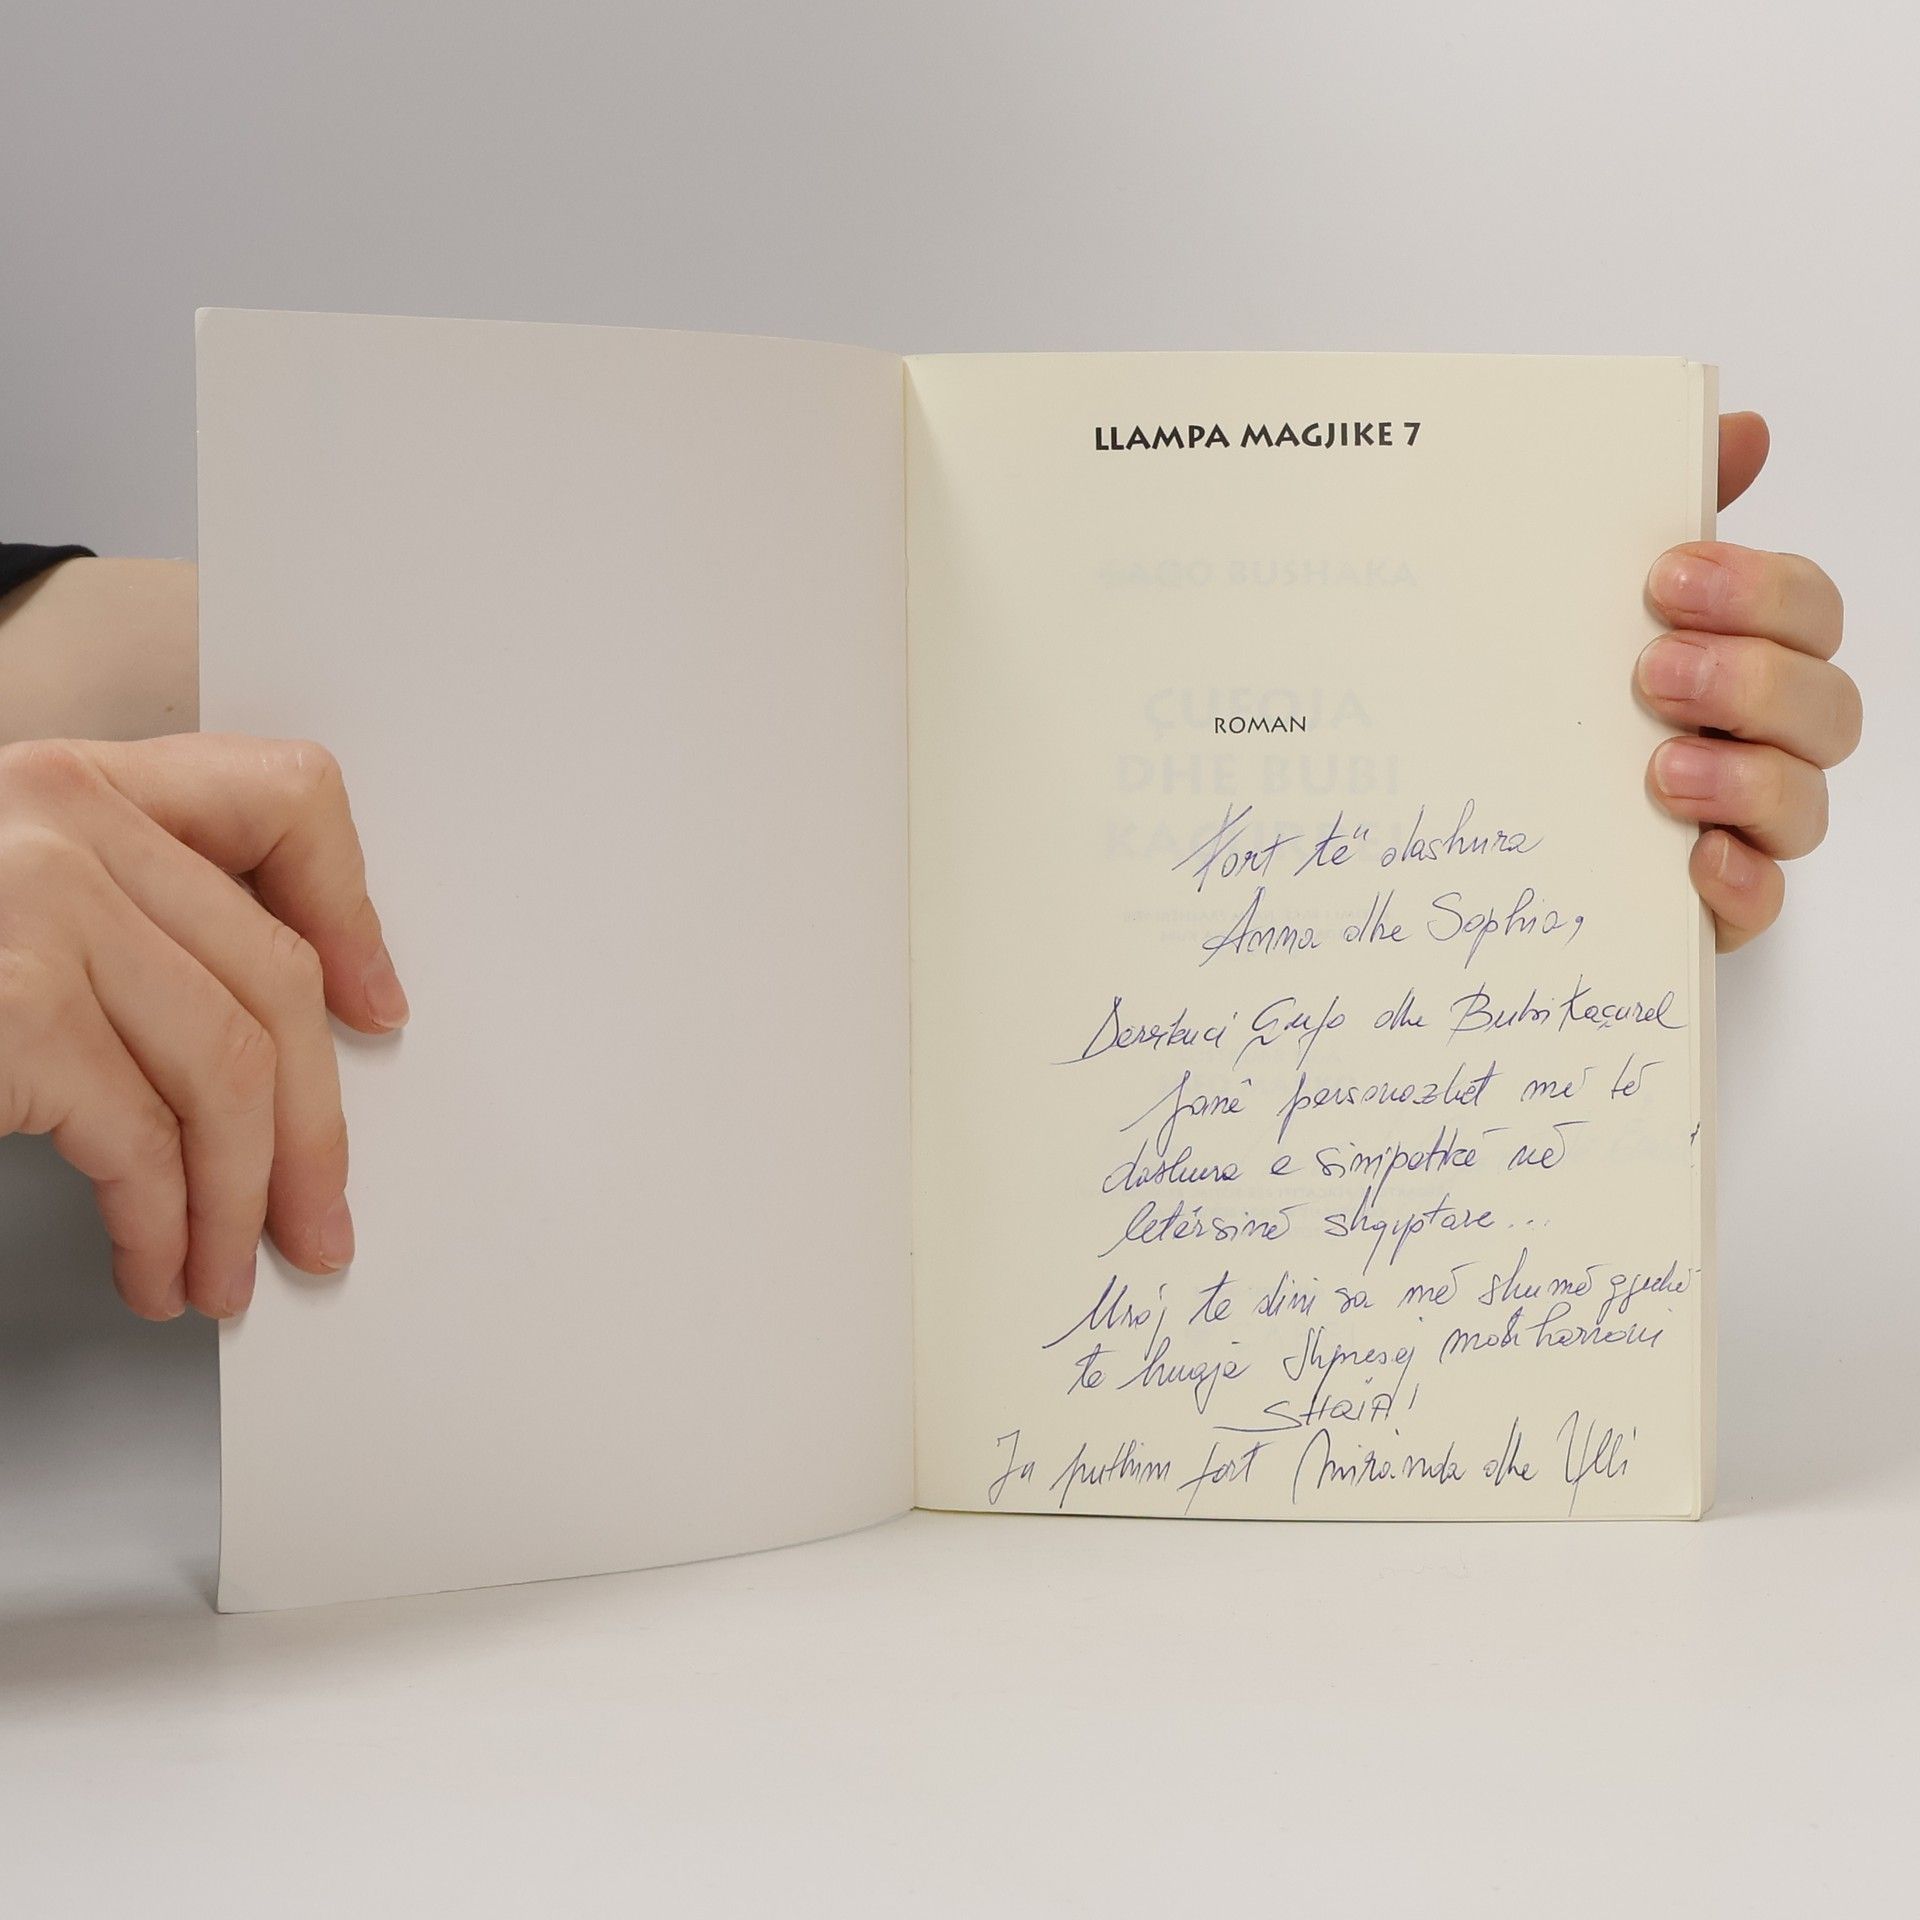 LLAMPA MAGJIKE 7
GAQO BUSHAKA
ÇUFOJA
ROMAN
DHE BUBI
Fort të dashura
Anna dhe Sophia,
Derrkuci Çufo dhe Bubi Kaçurel
janë personazhet më të
dashura e simpatikë në
letërsinë shqiptare...
Uroj te dini sa më shumë gjuhë
te huaja Shpresoj mos harroni
SHQIP!
Ju puthim fort Miranda dhe Ylli